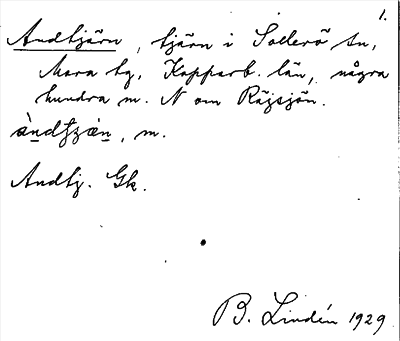 1.
Andtjärn, tjärn i Sollerö sn,
Mora tg, Kopparb. län, några
hundra m. N om Räjsjön.
, m.
Andtj. Gk.
B. Lindén 1929